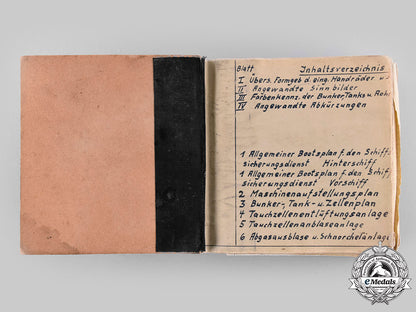 Blatt. Inhaltsverzeichnis
I Übers. Formgeb d. eing. Handräder u.
II Angewandte Sinnbilder
III Farbenkennz. der Bunker-Tanks u. Rohr
IV Angewandte Abkürzungen
1 Allgemeiner Bootsplan f. den Schiff
sicherungsdienst Hinterschiff
1 Allgemeiner Bootsplan f. den Schif
sicherungsdienst Vorschiff
2 Maschinenaufstellungsplan
3 Bunker-, Tank- u. Zellenplan
4 Tauchzellenentlüftungsanlage
5 Tauchzellenanblaseanlage
6 Abgasausblase u. Schnorchelanlage
eMedals